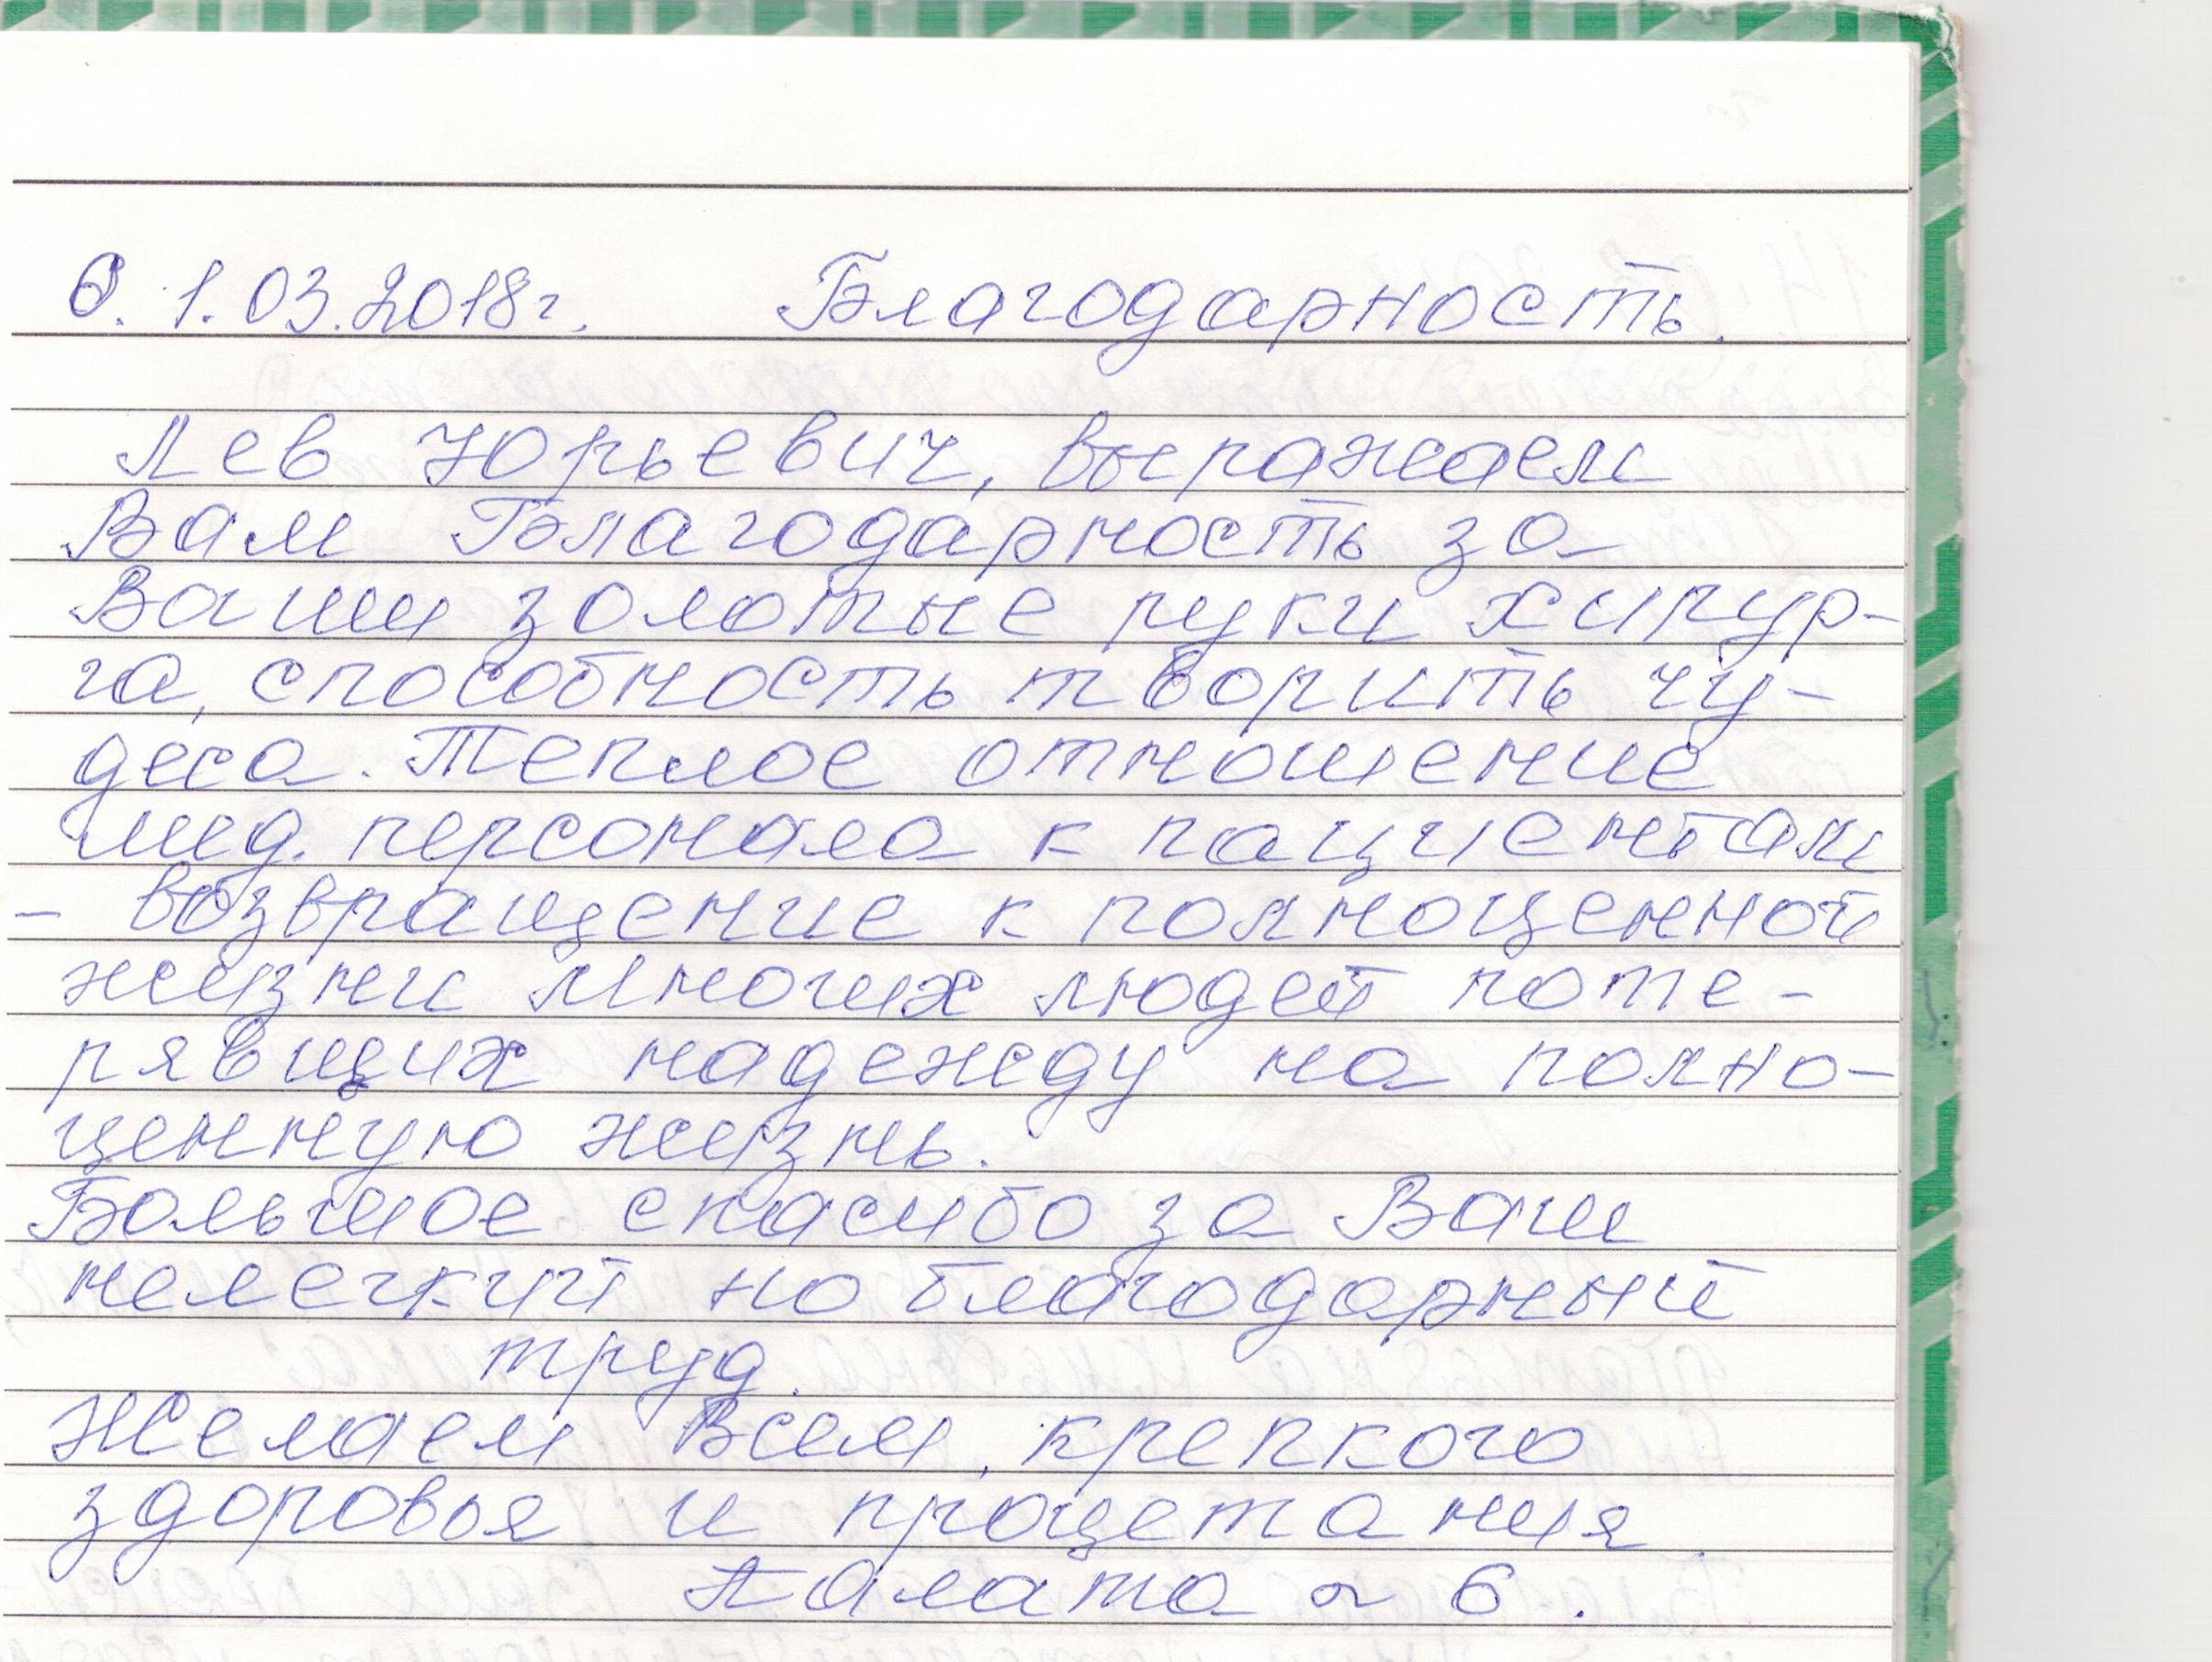 6. 1.03.2018г. Благодарность.
Лев Юрьевич, выражаем
Вам Благодарность за
Ваши золотые руки хирур-
га, способность творить чу-
деса. Теплое отношение
мед. персонала к пациентам
- возвращение к полноценной
жизни многих людей поте-
рявщих надежду на полно-
ценную жизнь.
Большое спасибо за Ваш
нелегкий но благодарный
труд.
Желаем Всем, крепкого
здоровья и процетания.
Палата ~ 6.